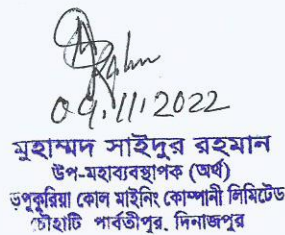 09.11.2022
মুহাম্মদ সাইদুর রহমান
উপ-মহাব্যবস্থাপক (অর্থ)
ড়পুকুরিয়া কোল মাইনিং কোম্পানী লিমিটেড
চৌহাটি পার্বতীপুর, দিনাজপুর